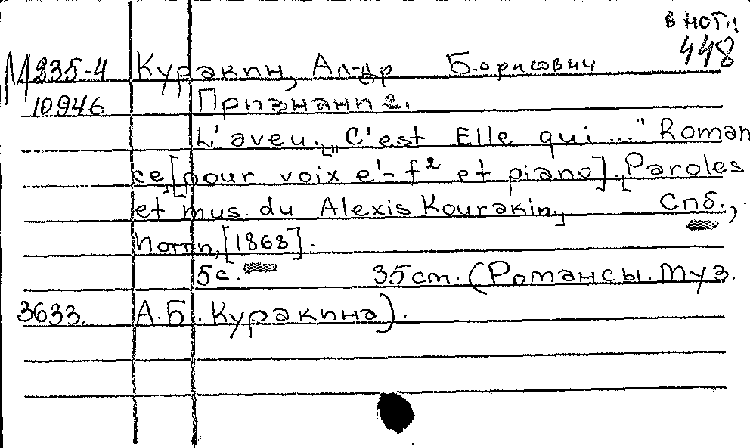 в нот.
448
М 235-4 Куракин, Ал-др Борисович
10946 Признание.
L'aveu. „C'est Elle qui..." Roman
ce, [pour voix e'-f² et piano]. [Paroles
et mus. du Alexis Kourakin, Спб.,
[1863].
5с. 35 cm. (Романсы. Муз.
3633. А.Б. Куракина).